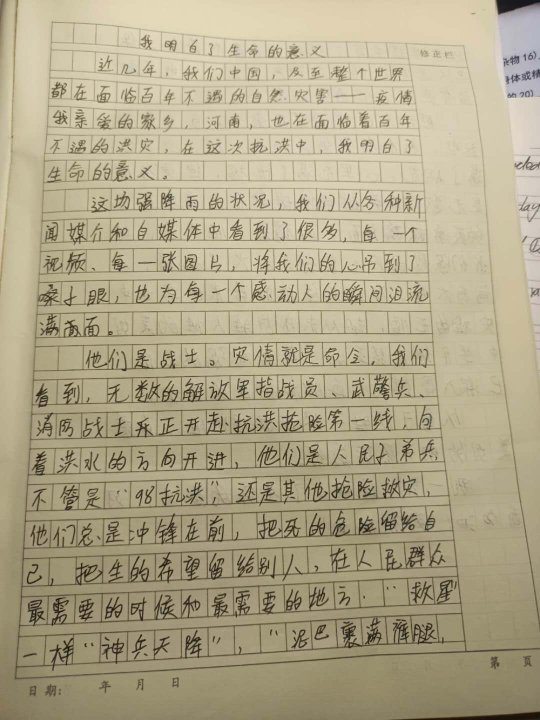 我明白了生命的意义
修正栏
近几年，我们中国，及至整个世界
都在面临百年不遇的自然灾害——疫情
我亲爱的家乡，河南，也在面临着百年
不遇的洪灾，在这次抗洪中，我明白了
生命的意义。
这场强降雨的状况，我们从各种新
闻媒介和自媒体中看到了很多，每一个
视频、每一张图片，将我们的心吊到了
嗓子眼，也为每一个感动人的瞬间泪流
满面。
他们是战士。灾情就是命令，我们
看到，无数的解放军指战员、武警兵、
消防战士乐正开赴抗洪抢险第一线，向
着洪水的方向开进，他们是人民子弟兵
不管是“98抗洪”，还是其他抢险救灾，
他们总是冲锋在前，把死的危险留给自
己，把生的希望留给别人，在人民群众
最需要的时候和最需要的地方，“救星”
一样“神兵天降”，“泥巴裹满裤腿，
日期： 年 月 日
第 页
杂物16)
身体或精
的20)